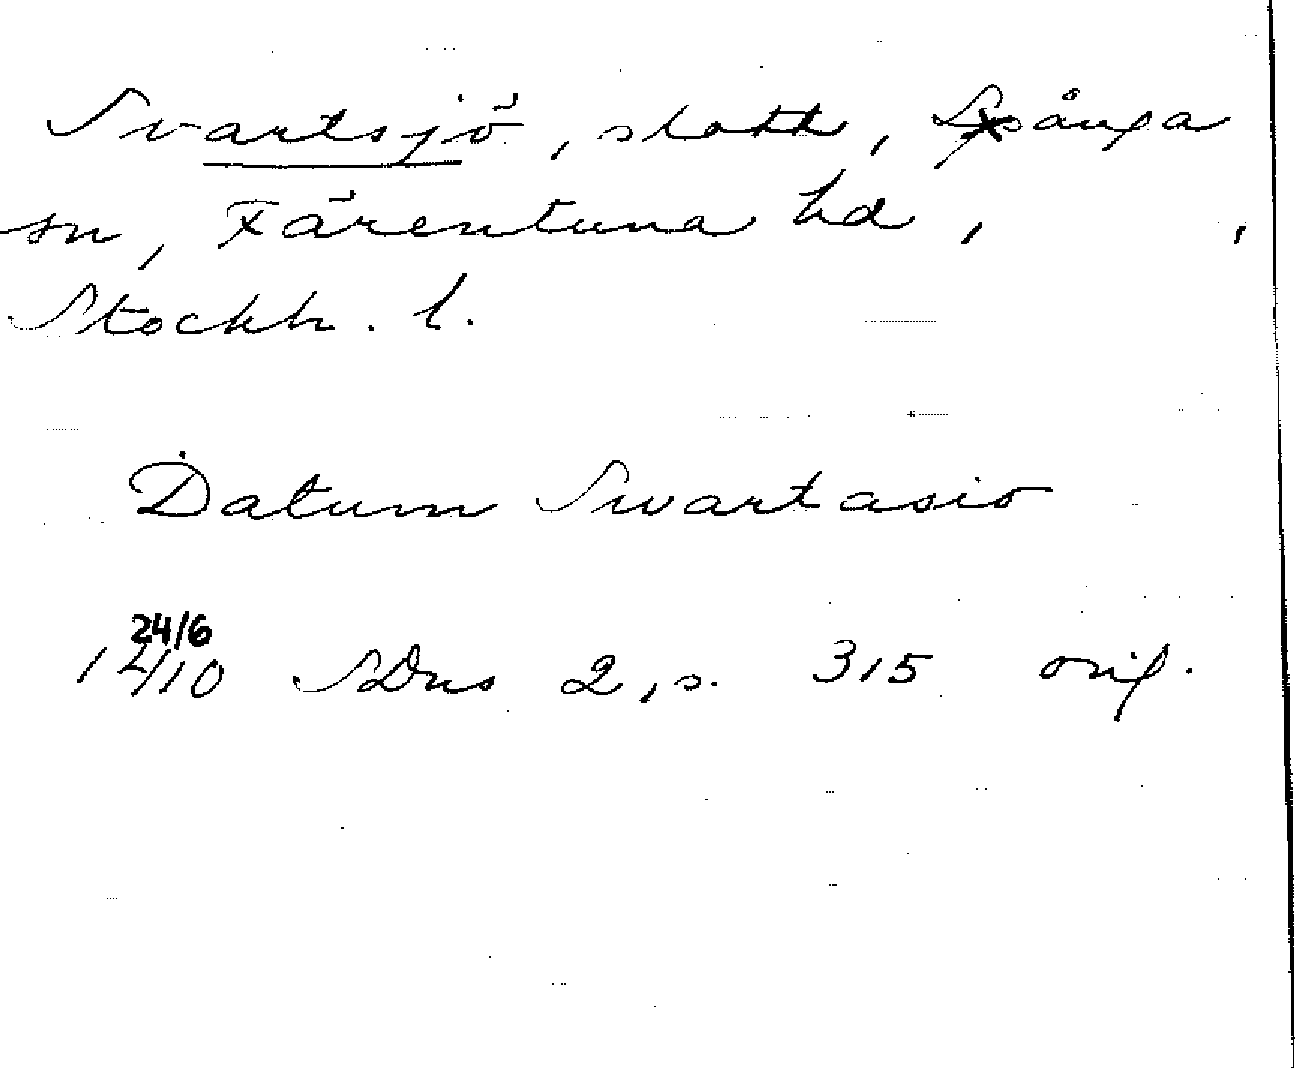 Svartsjö, slott, Sånga
sn, Färentuna hd, ,
Stockh. l.
Datum Swartasio
24/6
1410 SDns 2, s. 315 orig.